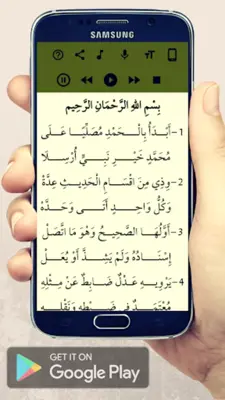 SAMSUNG
بِسْمِ اللهِ الرَّحْمَانِ الرَّحِيمِ
1- أَبْدَأُ بِالْحَمْدِ مُصَلِّيًا عَلَى
مُحَمَّدٍ خَيْرِ نَبِيٍّ أُرْسِلَا
2- وَذِي مِنَ اقْسَامِ الْحَدِيثِ عِدَّهْ
وَكُلُّ وَاحِدٍ أَتَى وَحَدَّهْ
3- أَوَّلُهَا الصَّحِيحُ وَهُوَ مَا اتَّصَلْ
إِسْنَادُهُ وَلَمْ يَشُذَّ أَوْ يُعَلْ
4- يَرْوِيهِ عَدْلٌ ضَابِطٌ عَنْ مِثْلِهِ
مُعْتَمَدٌ فِي ضَبْطِهِ وَنَقْلِهِ
GET IT ON
Google Play